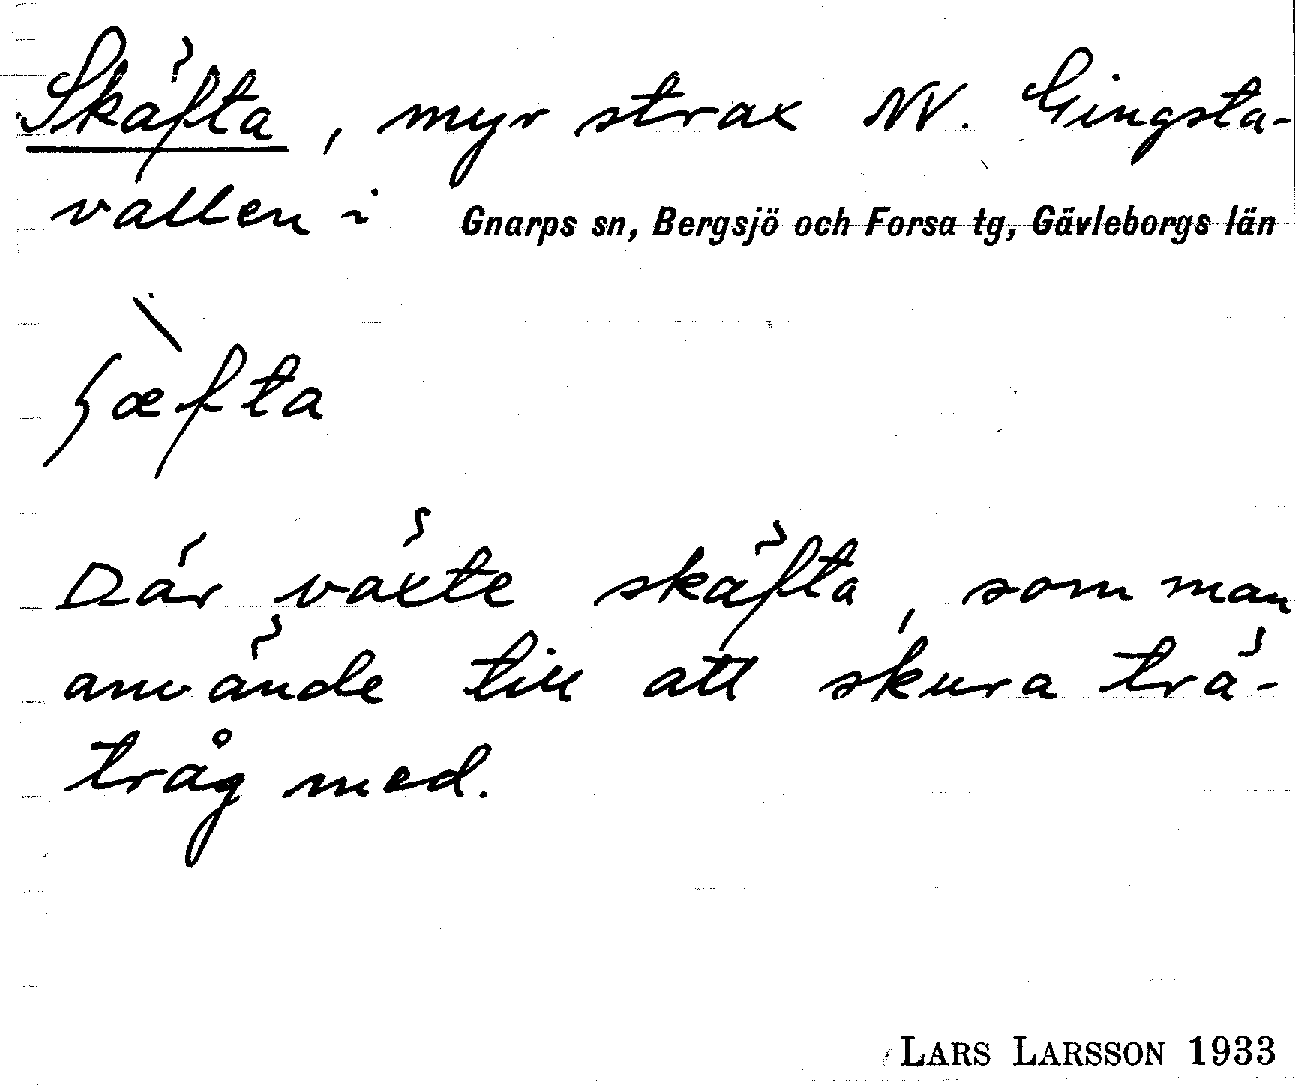 Skäfta, myr strax NV. Gingsta-
vallen i Gnarps sn, Bergsjö och Forsa tg, Gävleborgs län
ʃæ̀fta
Där växte skäfta, som man
använde till att skura trä-
tråg med.
LARS LARSSON 1933